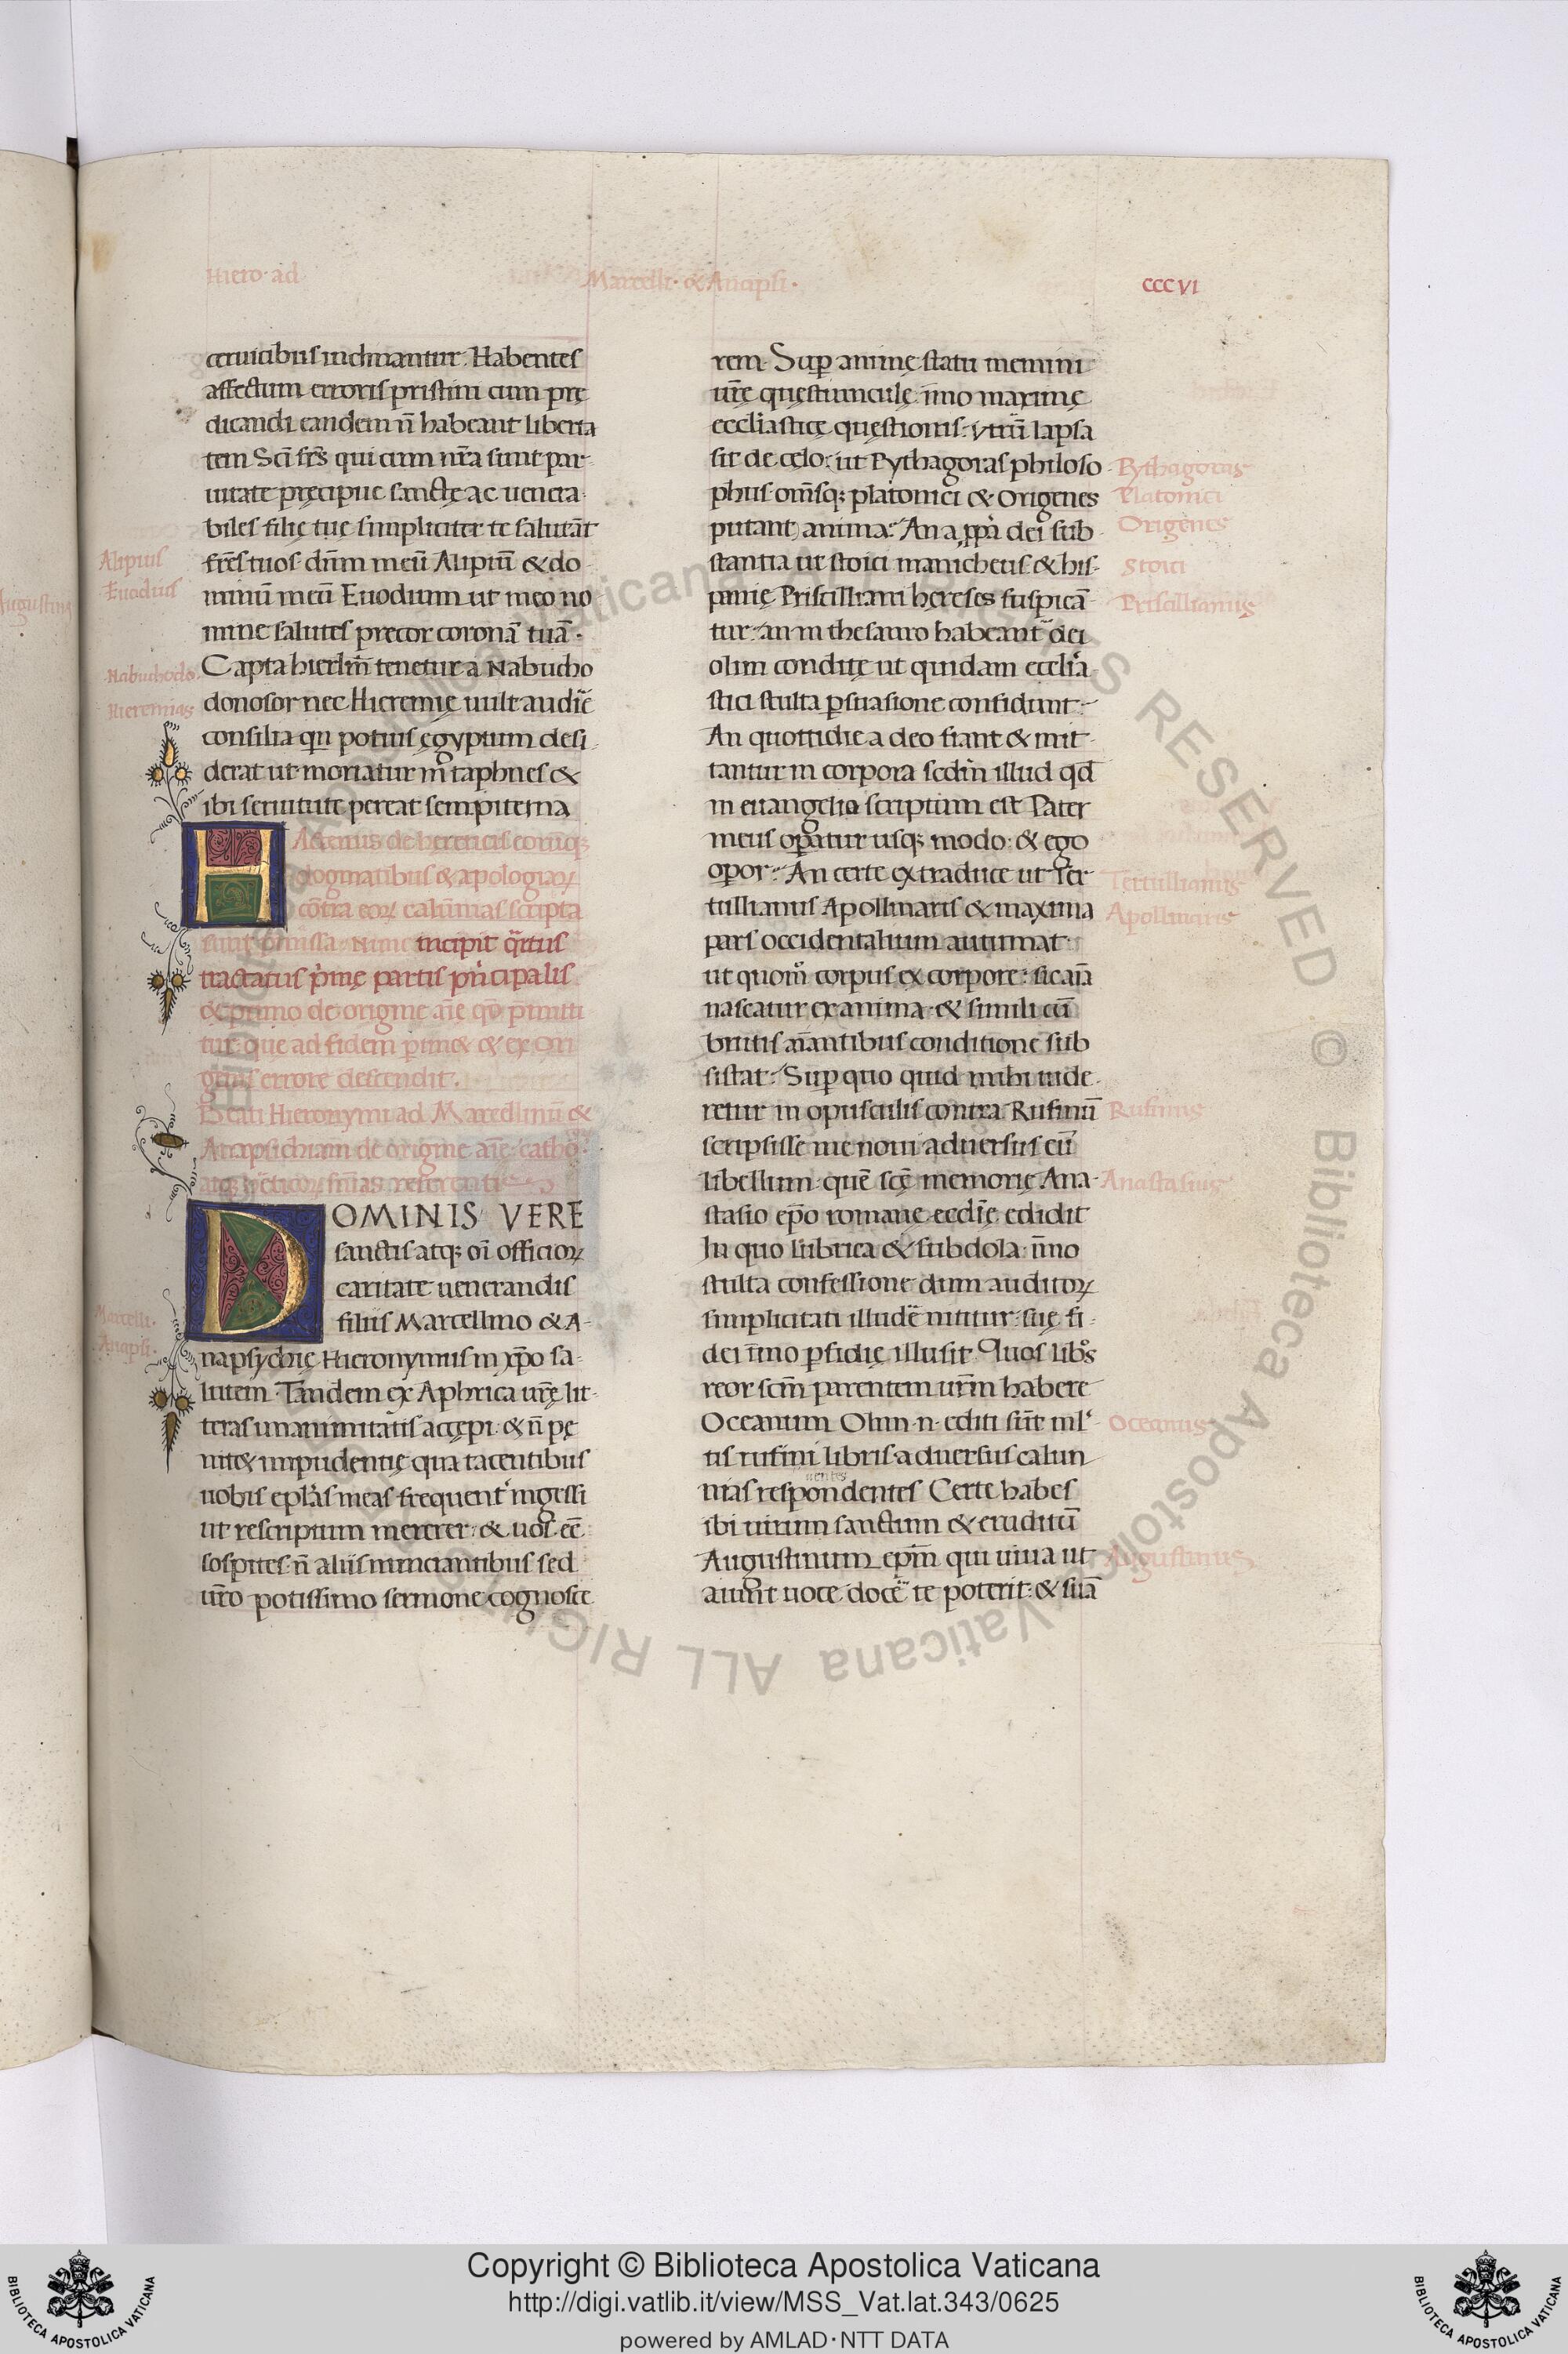 Hiero· ad
Marcelli· & Anapsi·
CCCVI
ceruicibus inclinantur. Habentes
affectum erroris pristini cum prę
dicandi eandem n̄ habeant liberta
tem Sc̄i fr̄s qui cum nr̄a sunt par
uitate pręcipue sanctę ac uenera
biles filię tuę simpliciter te salutāt
fr̄es tuos dn̄m meū Alipiū & do
minū meū Euodium ut meo no
mine salutes precor coronā tuā·
Capta hierlm̄ tenetur a Nabucho
donosor nec Hieremię uult audir̄e
consilia qn potius ęgyptum desi
derat ut moriatur in taphnes &
ibi seruitute pereat sempiterna
Alipius
Euodius
Nabuchodo.
Hieremias
HActenus de hereticis eorūq;
dogmatibus & apologiaꝝ
cōtra eoꝝ calūnias scripta
sunt omissa. Nunc incipit q̄rtus
tractatus p̄me partis p̄ncipalis
& primo de origine aīe
gēnis errore descendit.
Beati Hieronymi ad Marcellinū &
Anapsichiam de origine aīe catho.
DOMINIS VERE
sanctis atq; oī officioꝝ
caritate uenerandis
filiis Marcellino & A-
napsychię Hieronymus in xp̄o sa-
lutem. Tandem ex Aphrica ur̄ę lit-
teras unanimitatis accępi. & n̄ pę
nitet impudentię qua tacentibus
uobis epl̄as meas frequent̄ ingessi
ut rescriptum mererer. & uos eē
sospites. n̄ aliis nunciantibus sed
ur̄o potissimo sermone cognosce
Marcelli.
Anapsi.
rem. Suꝑ animę statu memini
ur̄ę quęstiunculę. īmo maximę
eccl̄iasticę quęstionis. vtrū lapsa
sit de cęlo: ut Pythagoras philoso
phus om̄sq; platonici & Origenes
putant anima: An a ꝓpr̄a dei sub
stantia ut stoici manicheus & his-
panię Priscilliani hereses suspicā
tur: an in thesauro habeant̄ dei
olim conditę ut quidam eccl̄ia
stici stulta ꝑsuasione confidunt:
An quottidie a deo fiant & mit
tantur in corpora sedm illud qd̄
in euangelio scriptum est Pater
meus oꝑatur usq; modo: & ego
oꝑor: An certe ex traduce ut Ter
tullianus Apollinaris & maxima
pars occidentalium autumat
ut quom̄o corpus ex corpore: sic aīa
nascatur ex anima. & simili cū
brutis aīantibus conditione sub
sistat: Suꝑ quo quid mihi uide
retur in opusculis contra Rufinū
scripsisse me noui aduersus eū
libellum. quē scę̄ memorię Ana-
stasio ep̄o romanę eccl̄ię edidit
In quo lubrica & subdola. īmo
stulta confessione dum auditoꝝ
simplicitati illudē nititur: suę fi
dei īmo ꝑfidię illusit. Quos lib̄os
reor scm̄ parentem ur̄m habere
Oceanum Olim n. editi sūt ml̄
tis rufini libris aduersus calun
nias respondentes Certe habes
nentes
ibi uirum sanctum & eruditū
Augustinum ep̄m qui uiua ut
aiunt uoce docē te poterit: & suā
Pythagoras
Platonici
Origenes
Stoici
Priscillianus
Tertullianus
Apollinaris
Rufinus
Anastasius
Oceanus
Augustinus
Biblioteca Apostolica Vaticana ALL RIGHTS RESERVED ©
Copyright © Biblioteca Apostolica Vaticana
http://digi.vatlib.it/view/MSS_Vat.lat.343/0625
powered by AMLAD·NTT DATA
BIBLIOTECA APOSTOLICA VATICANA
BIBLIOTECA APOSTOLICA VATICANA